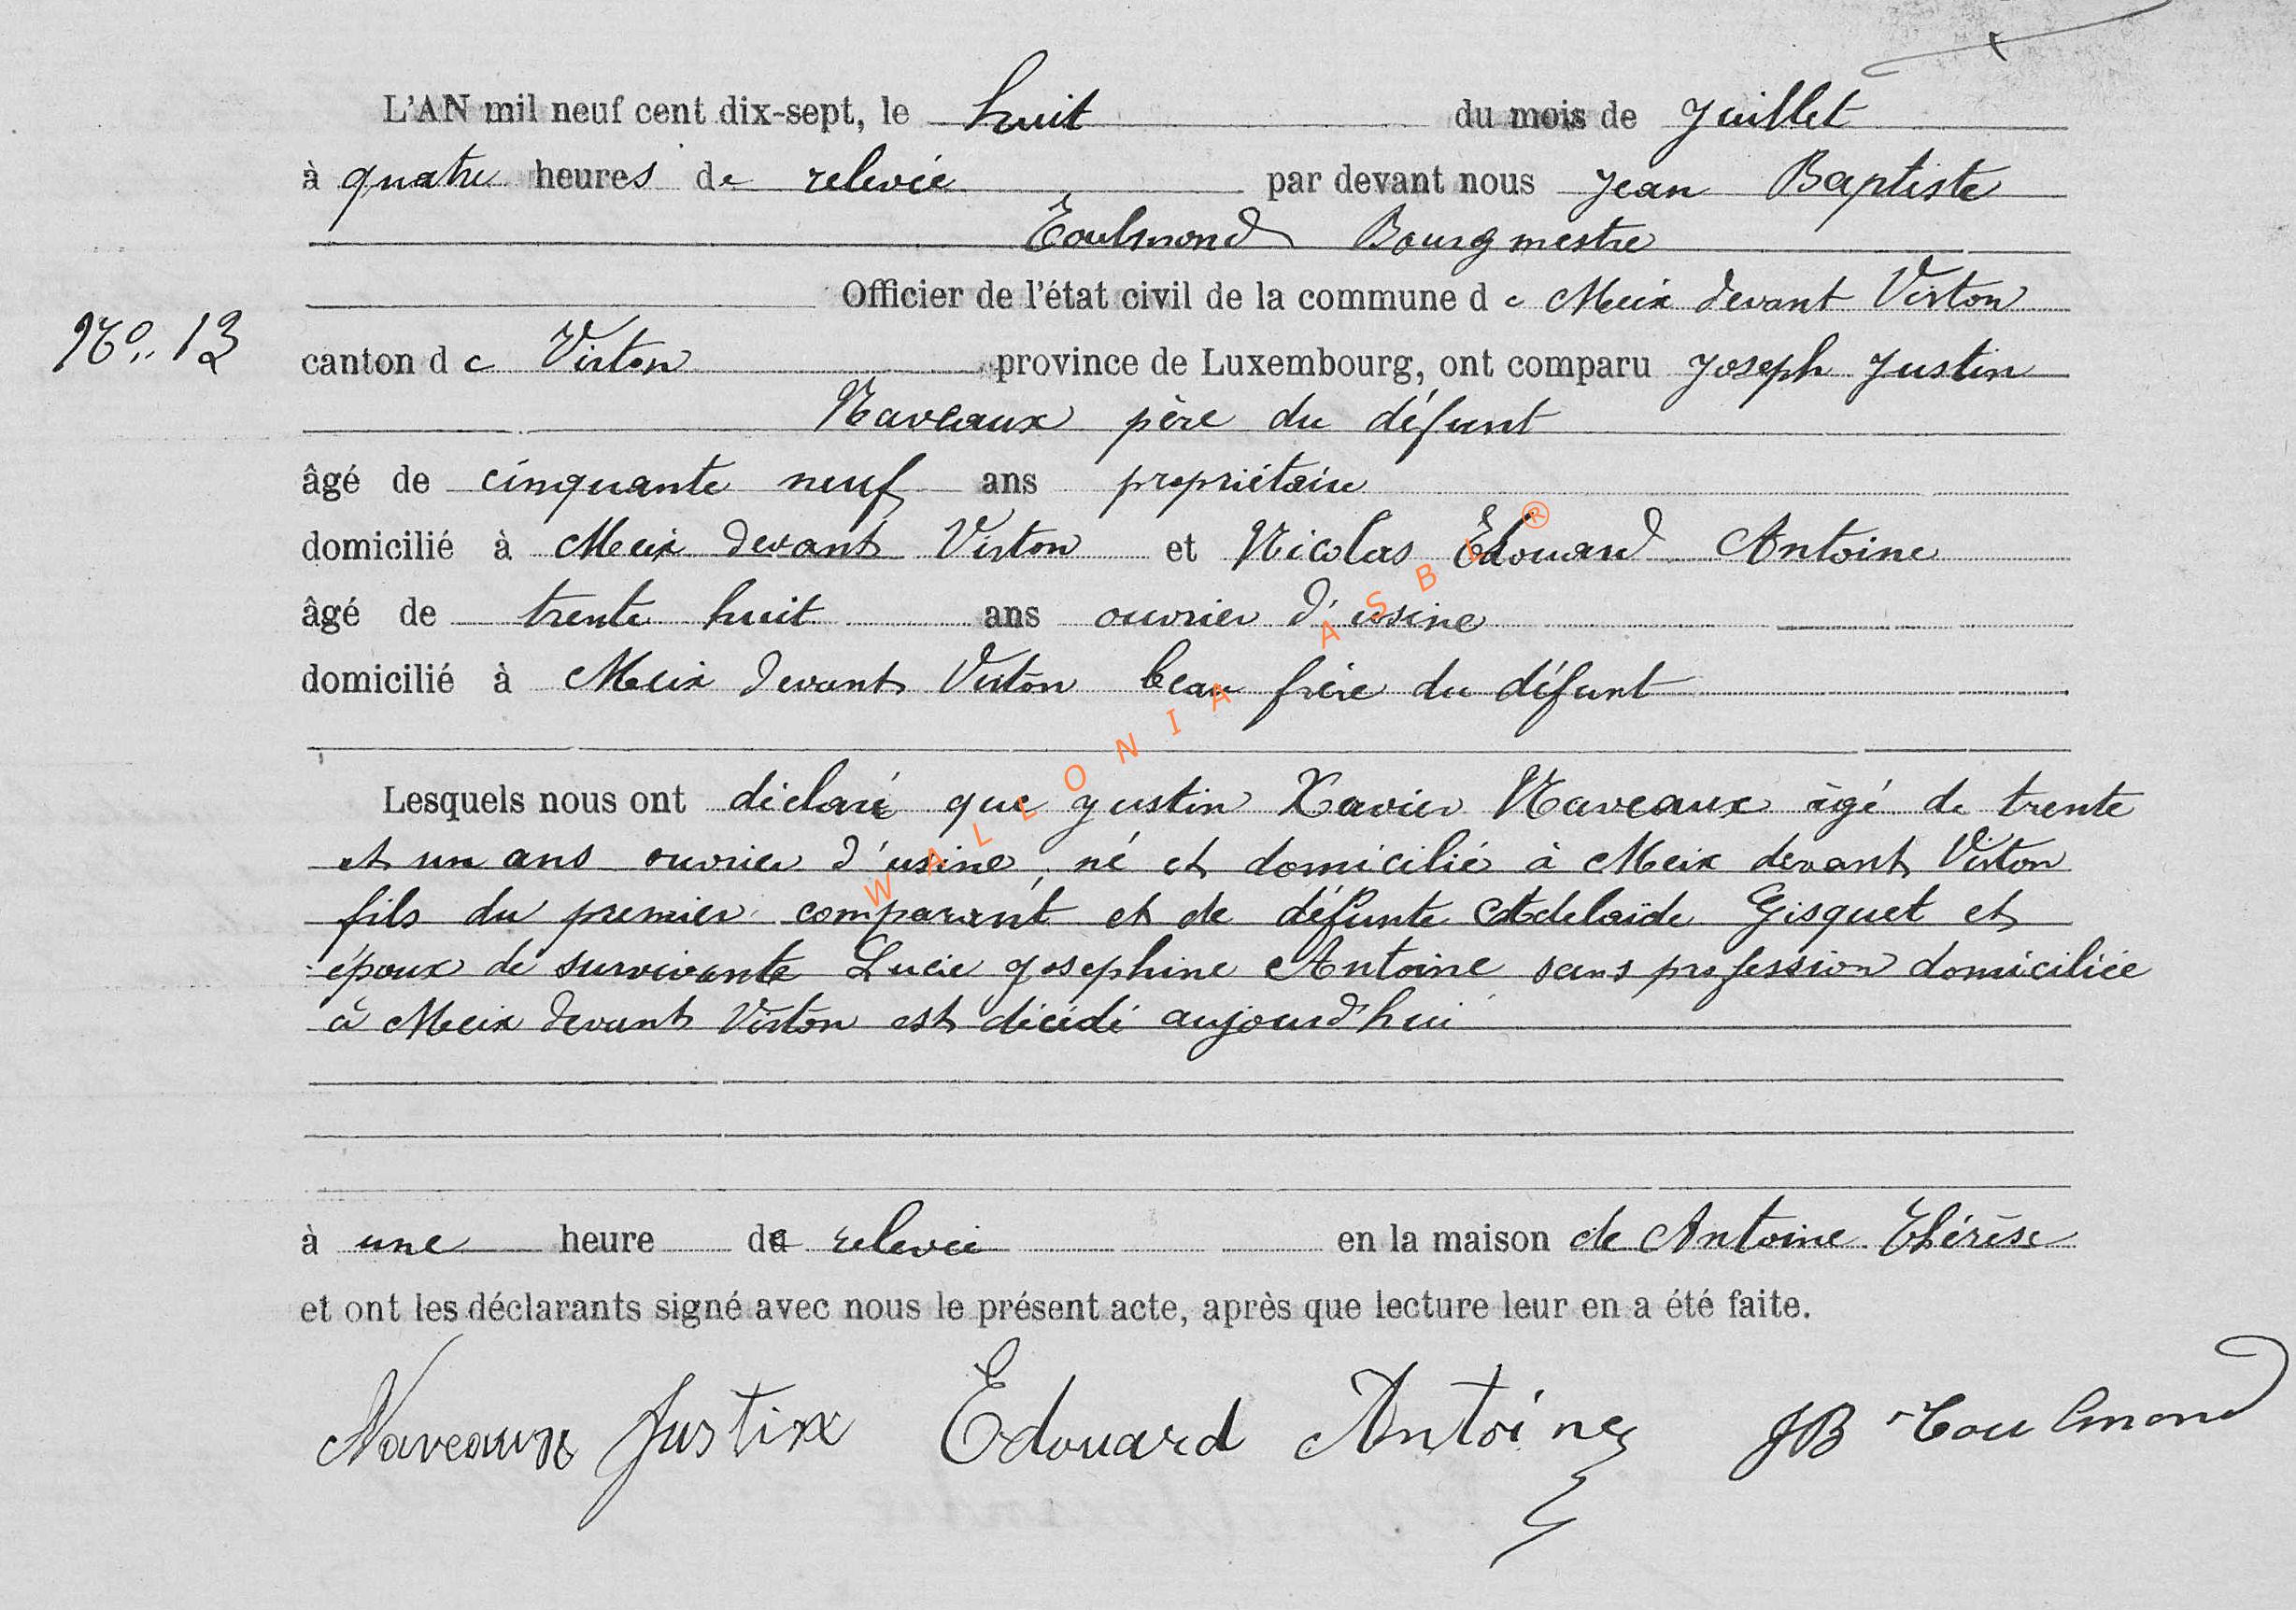 L'AN mil neuf cent dix-sept, le huit du mois de Juillet
à quatre heures de relevée par devant nous Jean Baptiste
Toulmond Bourgmestre
Officier de l'état civil de la commune de Meix devant Virton
No. 13
canton de Virton province de Luxembourg, ont comparu Joseph Justin
Naveaux père du défunt
âgé de cinquante neuf ans propriétaire
domicilié à Meix devant Virton et Nicolas Edouard Antoine
âgé de trente huit ans ouvrier d'usine
domicilié à Meix devant Virton beau frère du défunt
Lesquels nous ont déclaré que Justin Xavier Naveaux âgé de trente
et un ans ouvrier d'usine, né et domicilié à Meix devant Virton
fils du premier comparant et de défunte Adelaïde Gisquet et
époux de survivante Lucie Josephine Antoine sans profession domiciliée
à Meix devant Virton est décédé aujourd'hui
à une heure de relevée en la maison de Antoine Thérèse
et ont les déclarants signé avec nous le présent acte, après que lecture leur en a été faite.
Naveaux Justin Edouard Antoine JB Toulmond
WALLONIA ASBL ®